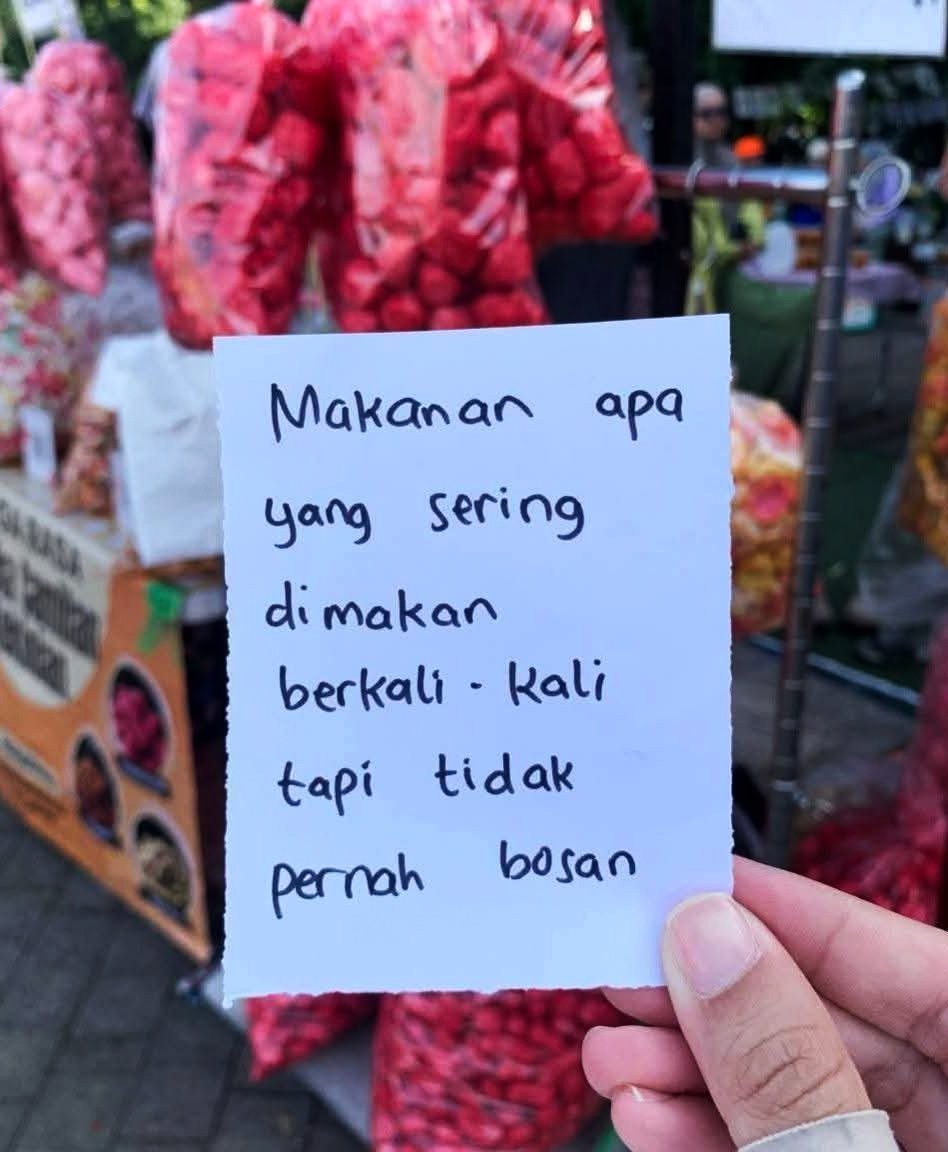 Makanan apa
yang sering
dimakan
berkali-kali
tapi tidak
pernah bosan